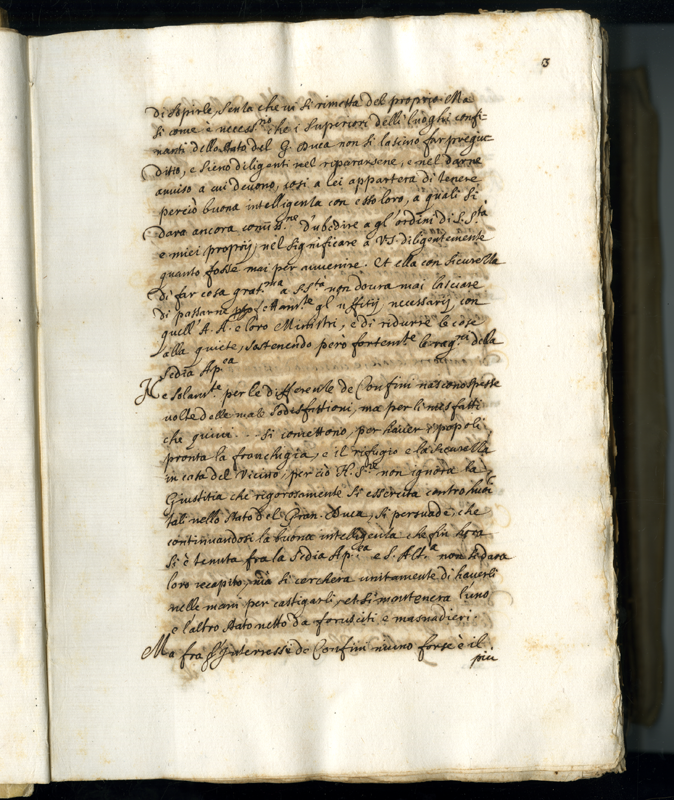 3
di sopirle, senza che vi si rimetta del proprio. Ma
si come è necess.rio che i Superiori delli luoghi confi-
nanti dello stato del G. Duca non si lascino far pregiu-
ditio, e sieno diligenti nel ripararsene, e nel darne
avviso a cui devono, così a lei apparterà di tenere
perciò buona intelligenza con esso loro, a quali si
darà ancora comiss.ne d'ubedire a gl'ordini di S. S.tà
e miei proprij, nel significare a VS. diligentemente
quanto fosse mai per avvenire. Et ella con sicurezza
di far cosa grat.ma a S. S.tà non dovrà mai lasciare
di passarne gl'uffitij necessarij con
quell'A. A. e loro Ministri, e di ridurre le cose
alla quiete, sostenendo però fortem.te le rag.ni della
Sedia Ap.ca
Ne solam.te per le differenze de Confini nascono spesse
volte delle male sodisfattioni, ma per li misfatti
che quivi si comettono, per haver i popoli
pronta la franchigia, e il rifugio e la sicurezza
in casa del Vicino, per ciò N. S.re non ignora la
Giustitia che rigorosamente si essercita contro huo.
tali nello stato del Gran-Duca, si persuade, che
continuandosi la buona intelligenza che fin hora
si è tenuta fra la Sedia Ap.ca e S. Alt.a non si darà
loro recapito, mà si cercherà unitamente di haverli
nelle mani per castigarli, et si mantenerà l'uno
e l'altro stato netto da forusciti e masnadieri.
Ma fra gl'Interressi de Confini niuno forse è il
più